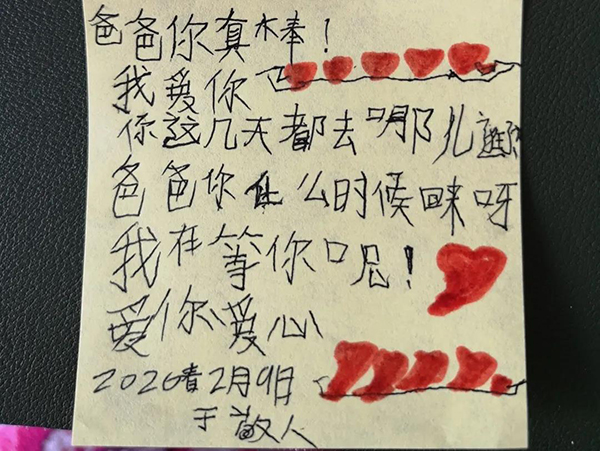 爸爸你真棒！
我爱你
你这几天都去哪儿
爸爸你什么时候回来呀
我在等你呢！
爱你爱心
2026春2月9日
于敬人